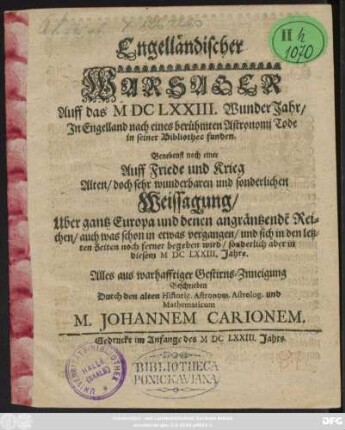 II h
1070
Engelländischer
Warsager
Auff das M DC LXXIII. Wunder Jahr/
In Engelland nach eines berühmten Astronomi Tode
in seiner Bibliothec funden.
Benebenst noch einer
Auff Friede und Krieg
Alten/ doch sehr wunderbaren und sonderlichen
Weissagung/
Uber gantz Europa und denen angräntzendē Rei-
chen/ auch was schon in etwas vergangen/ und sich in den letz-
ten Zeiten noch ferner begeben wird/ sonderlich aber in
diesem M DC LXXIII. Jahre.
Alles aus warhafftiger Gestirns-Zuneigung
Beschrieben
Durch den alten Historic. Astronom. Astrolog. und
Mathematicum
M. JOHANNEM CARIONEM.
Gedruckt im Anfange des M DC LXXIII. Jahrs.
UNIVERSITÄTS-BIBLIOTHEK
HALLE
(SAALE)
BIBLIOTHECA
PONICKAVIANA
DFG